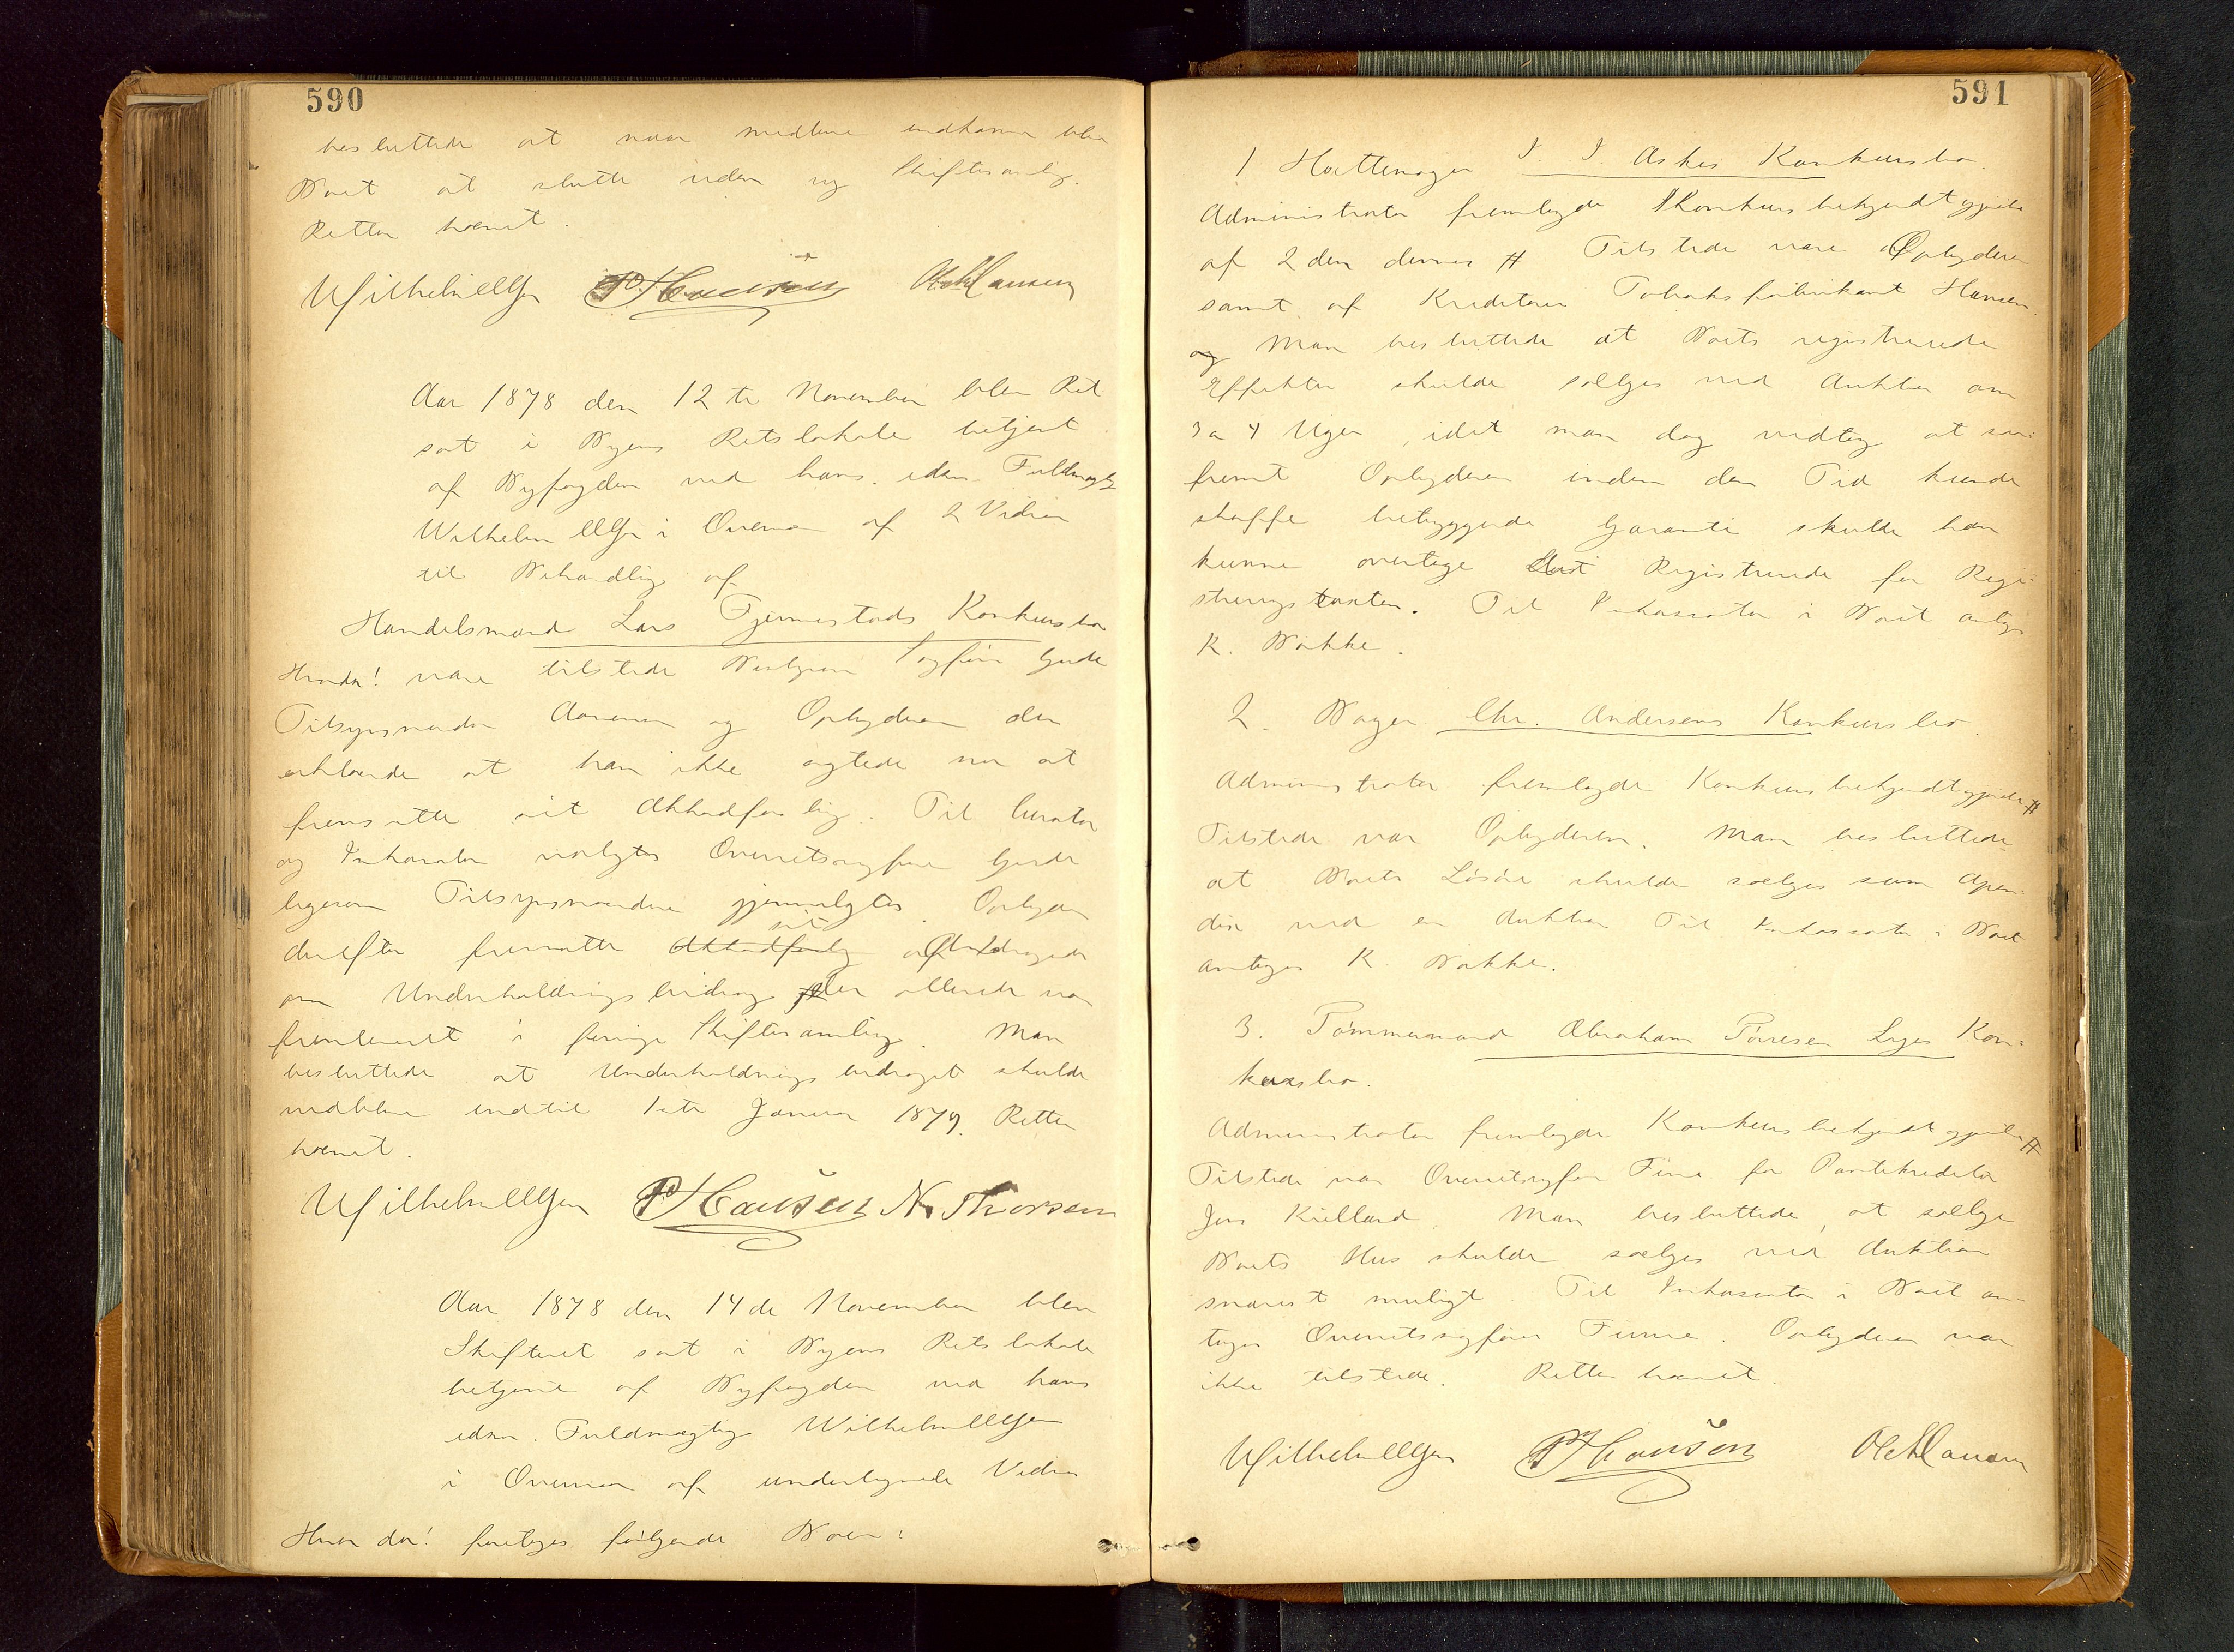 590
besluttede at naar midlene indkommer blev
Boet at slutte uden ny Skiftesamlig.
Retten hævet.
Wilhelm Ellefsen P Hansen O Hansen
Aar 1878 den 12te November blev Ret
sat i Byens Retslokale betjent
af Byfogden ved hans edsv. Fuldmægtig
i Overvær af 2 Vidner
til Behandlig af
Handelsmand Lars Fjermestads Konkursbo
Hvorda! vare tilstede Bestyreren Sagfører Gjerde
Tilsynsmanden Aanensen og Opbyderen der
erklærede at han ikke agtede nu at
fremsætte sit Akkordforslag. Til Curator
og Inkasator valgtes Overretssagfører Gjerde
ligesom Tilsynsmændene gjenvalgtes. Opbyderen
derefter fremsatte sit Andragende
om Underholdningsbidrag der allerede var
fremkommet i forrige Skiftesamling. Man
besluttede at Underholdningsbidraget skulde
vedblive indtil 1ste Januar 1879. Retten
hævet.
P Hansen N. Thorsen
Aar 1878 den 14de November blev
Skifteret sat i Byens Retslokale
betjent af Byfogden ved hans
edsv. Fuldmægtig
i Overvær af underlignede Vidner
Hvor da! foretoges følgende Boer:
591
1 Hattemager I. I. Askes Konkursbo.
Administrator fremlagde Konkursbekjendtgjørelse
af 2den dennes # Tilstede vare Opbyderen
samt af Kreditorer Tobaksfabrikant Hansen.
og Man besluttede at Boets registrerede
Effekter skulde sælges ved Auktion om
3 a 4 Uger, idet man dog vedtog at saa-
fremt Opbyderen inden den Tid kunde
skaffe betryggende Garanti skulde han
kunne overtage det Registrerede for Regi-
streringstaxten. Til Inkassator i Boet antoges
K. Bakke.
2. Bager Chr. Andersens Konkursbo.
Administrator fremlagde Konkursbekjendtgjørelse #
Tilstede var Opbyderen. Man besluttede
at Boets Løsøre skulde sælges som Apen-
dix ved en Auktion Til Inkassator i Boet
antoges K. Bakke.
3. Tømmermand Abraham Tørresen Lyes Kon-
kursbo.
Administrator fremlagde Konkursbekjendtgjørelse #
Tilstede var Overretssagfører Finne for Pantekreditor
Jens Kielland. Man besluttede, at sælge
Boets Hus skulde sælges ved Auktion
snarest muligt. Til Inkassator i Boet an-
toges Overretssagfører Finne. Opbyderen var
ikke tilstede. Retten hævet.
P Hansen